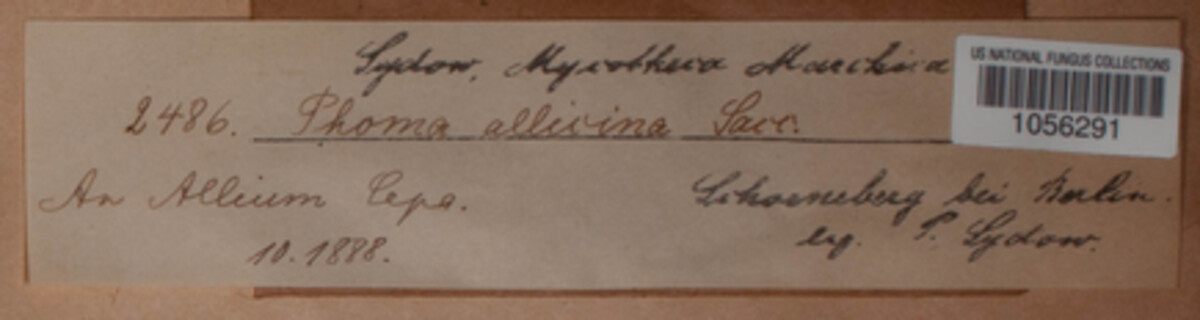 Sydow, Mycotheca Marchica
US NATIONAL FUNGUS COLLECTIONS
1056291
2486. Phoma allicina Sacc.
An Allium Cepa.
10.1888.
Schoeneberg bei Berlin.
leg. P. Sydow.